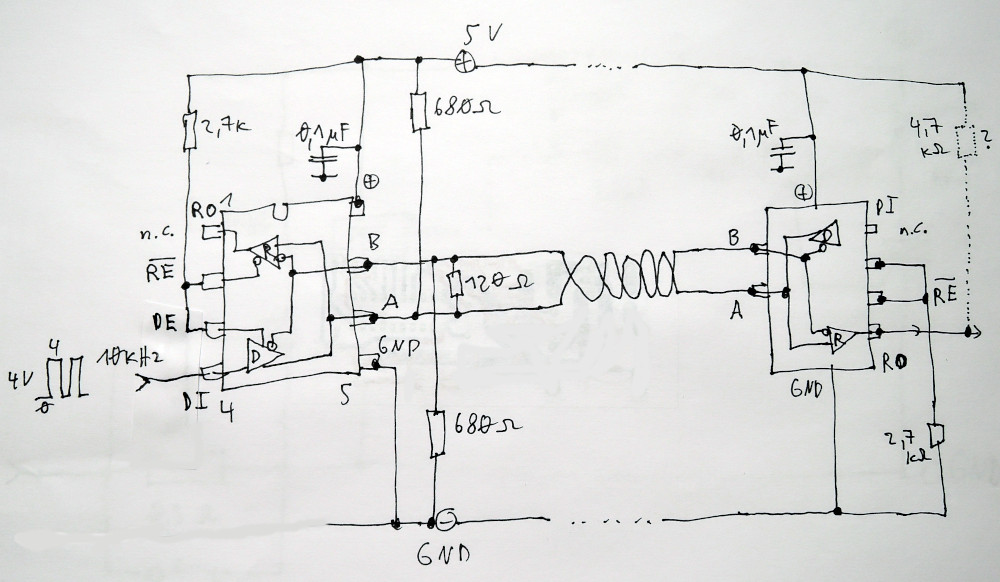 5V
680Ω
2,7K
0,1µF
⊕
RO 1
n.c.
R̅E̅
DE
4
4V
0
10KHz
DI 4
5
R
D
B
A
GND
120Ω
680Ω
⊖
GND
0,1µF
⊕
4,7
KΩ
?
DI
n.c.
D
B
A
R̅E̅
R
RO
GND
2,7
KΩ